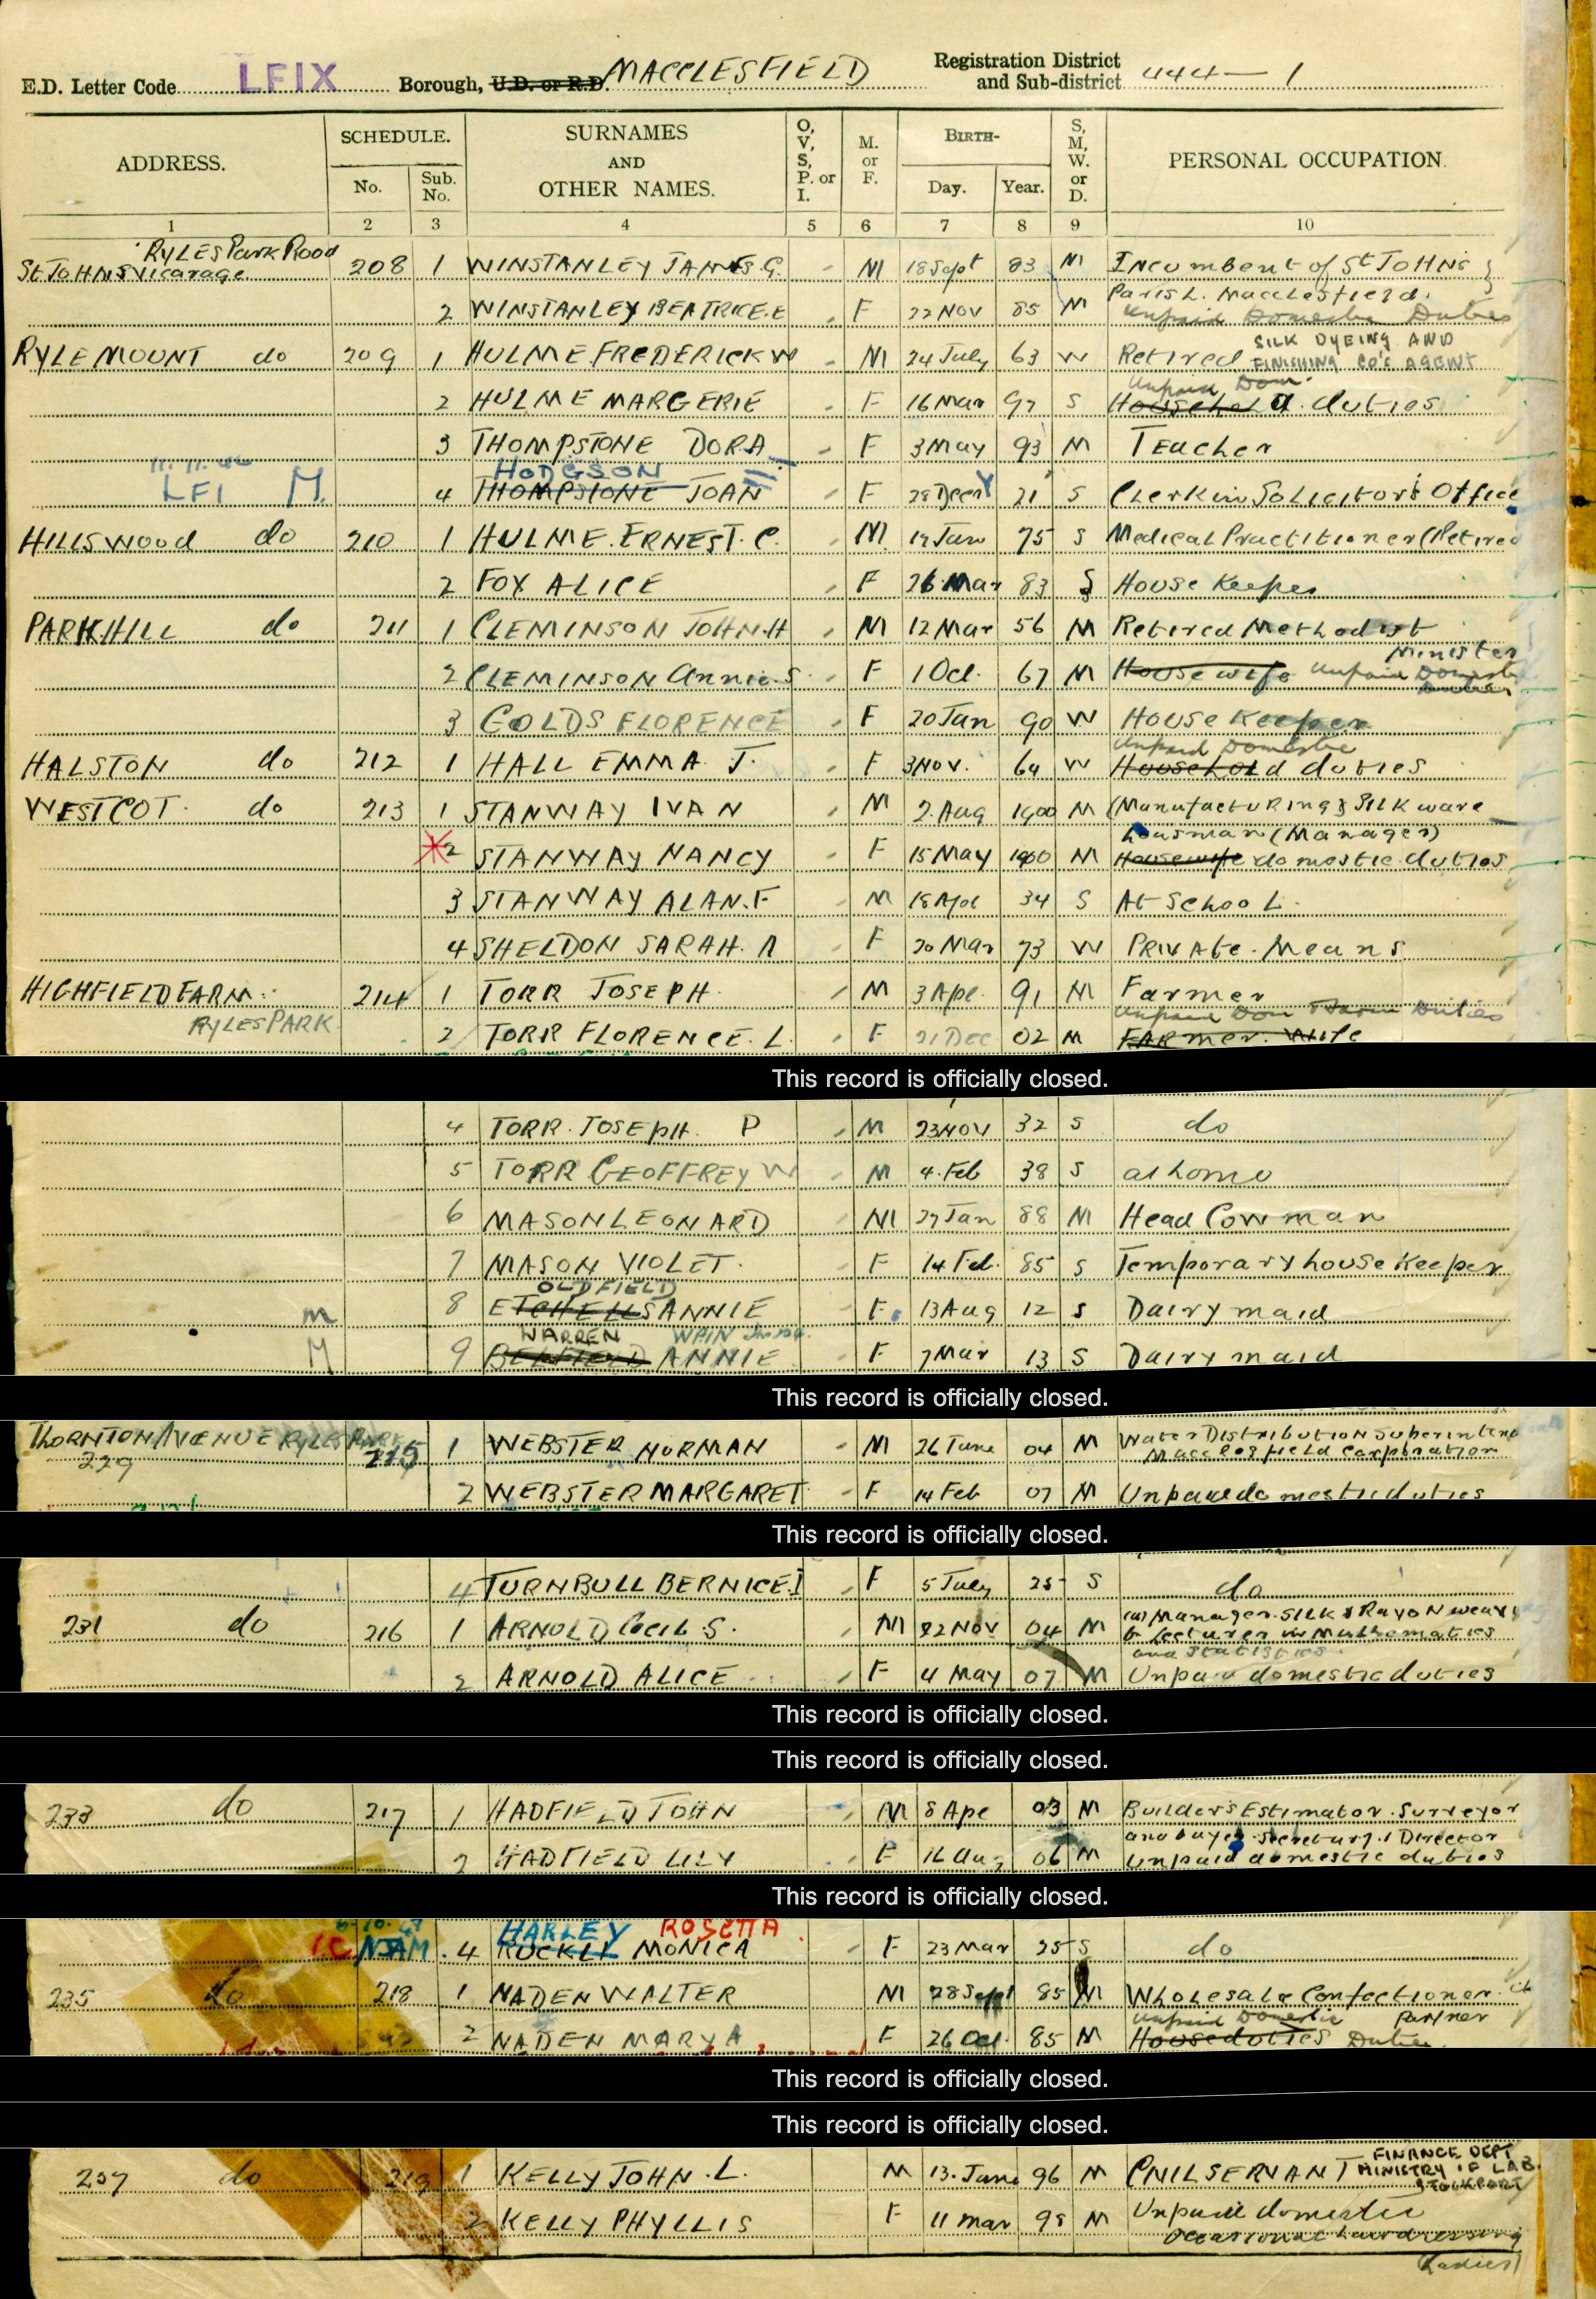 E.D. Letter Code LFIX Borough, U.D. or R.D. MACCLESFIELD Registration District and Sub-district 444 — 1
ADDRESS. SCHEDULE. No. Sub. No. SURNAMES AND OTHER NAMES. O, V, S, P. or I. M. or F. BIRTH- Day. Year. S, M, W. or D. PERSONAL OCCUPATION.
1 2 3 4 5 6 7 8 9 10
RYLES Park Road
St. JOHNS Vicarage 208 1 WINSTANLEY JAMES. G. M 18 Sept 83 M Incumbent of St JOHNS
Parish. Macclesfield.
2 WINSTANLEY BEATRICE. E F 22 NOV 85 M Unpaid Domestic Duties
SILK DYEING AND
RYLEMOUNT do 209 1 HULME FREDERICK W M 24 July 63 W Retired FINISHING CO'S AGENT
Unpaid Dom.
2 HULME MARGERIE F 16 Mar 97 S Household duties
3 THOMPSTONE DORA F 3 May 93 M Teacher
HODGSON
LFI M. 4 THOMPSTONE JOAN F 28 Decr 21 S Clerk in Solicitor's Office
HILLSWOOD do 210 1 HULME. ERNEST. C. M 14 Jan 75 S Medical Practitioner (Retired
2 FOX ALICE F 26 Mar 83 S House Keeper
PARKHILL do 211 1 CLEMINSON JOHN. H M 12 Mar 56 M Retired Methodist
Minister
2 CLEMINSON Annie. S. F 1 Oct. 67 M Housewife Unpaid Domestic Duties
3 GOLDS FLORENCE F 20 Jan 90 W House Keeper
Unpaid Domestic
HALSTON do 212 1 HALL EMMA J. F 3 NOV. 64 W Household duties
WESTCOT. do 213 1 STANWAY IVAN M 2. Aug 1900 M (Manufacturing) SILK ware
housman (Manager)
2 STANWAY NANCY F 15 May 1900 M Housewife domestic duties
3 STANWAY ALAN. F M 18 Apl 34 S At School.
4 SHELDON SARAH. A F 20 Mar 73 W PRIVATE. Means
HIGHFIELD FARM. 214 1 TORR JOSEPH. M 3 Apl. 91 M Farmer
RYLES PARK Unpaid Dom Duties
2 TORR FLORENCE. L. F 21 Dec 02 M FARmer. Wife
This record is officially closed.
4 TORR. JOSEPH. P M 23 NOV 32 S do
5 TORR GEOFFREY W M 4. Feb 38 S at home
6 MASON LEONARD M 27 Jan 88 M Head Cowman
7 MASON VIOLET. F 14 Feb. 85 S Temporary house Keeper
OLDFIELD
m 8 ETCHELLS ANNIE F. 13 Aug 12 S Dairy maid
WARREN
M 9 ANNIE F 7 Mar 13 S Dairy maid
This record is officially closed.
THORNTON AVENUE RYLES PARK 215 1 WEBSTER NORMAN M 26 June 04 M Water Distribution Superintend
229 Macclesfield Corporation
2 WEBSTER MARGARET F 14 Feb 07 M Unpaid domestic duties
This record is officially closed.
4 TURNBULL BERNICE. I F 5 July 25 S do
231 do 216 1 ARNOLD Cecil S. M 22 NOV 04 M (a) Manager. SILK & RAYON weav
b Lecturer in Mathematics
and Statistics
2 ARNOLD ALICE F 4 May 07 M Unpaid domestic duties
This record is officially closed.
This record is officially closed.
233 do 217 1 HADFIELD JOHN M 8 Apl 03 M Builder's Estimator. Surveyor
and buyer. Secretary. Director
2 HADFIELD LILY F 16 Aug 06 M Unpaid domestic duties
This record is officially closed.
HARLEY ROSETTA
4 MONICA F 23 Mar 25 S do
235 do 218 1 NADEN WALTER M 28 Sept 85 M Wholesale Confectioner.
Unpaid Domestic Partner
2 NADEN MARY A F 26 Oct. 85 M House duties Duties
This record is officially closed.
This record is officially closed.
FINANCE DEPT
237 do 219 1 KELLY JOHN. L. M 13. June 96 M CIVIL SERVANT MINISTRY OF LAB.
STOCKPORT
2 KELLY PHYLLIS F 11 Mar 98 M Unpaid domestic
occasional hairdressing
(Ladies)